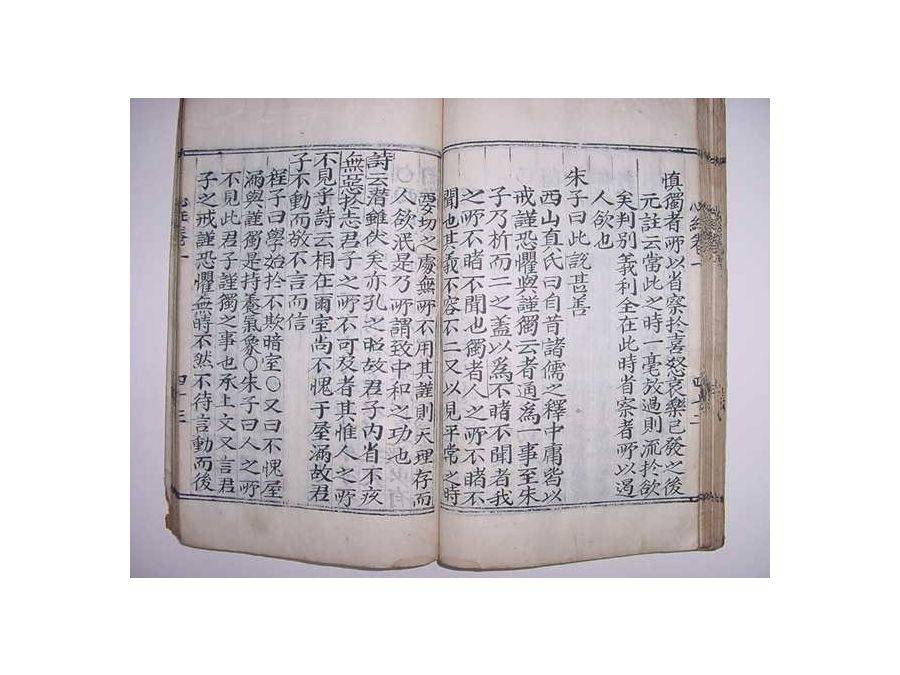 慎獨者所以省察於喜怒哀樂已發之後
元註云當此之時一毫放過則流於欲
矣判别義利全在此時省察者所以遏
人欲也
朱子曰此說甚善
西山真氏曰自昔諸儒之釋中庸皆以
戒謹恐懼與謹獨云者通為一事至朱
子乃析而二之盖以為不睹不聞者我
之所不睹不聞也獨者人之所不睹不
聞也其義不容不二又以見平常之時
要切之處無所不用其謹則天理存而
人欲泯是乃所謂致中和之功也
詩云潛雖伏矣亦孔之昭故君子内省不疚
無惡於志君子之所不可及者其惟人之所
不見乎詩云相在爾室尚不愧于屋漏故君
子不動而敬不言而信
程子曰學始於不欺暗室○又曰不愧屋
漏與謹獨是持養氣象○朱子曰人之所
不見此君子謹獨之事也承上文又言君
子之戒謹恐懼無時不然不待言動而後
心經卷一
四十三
心經卷一
四十二